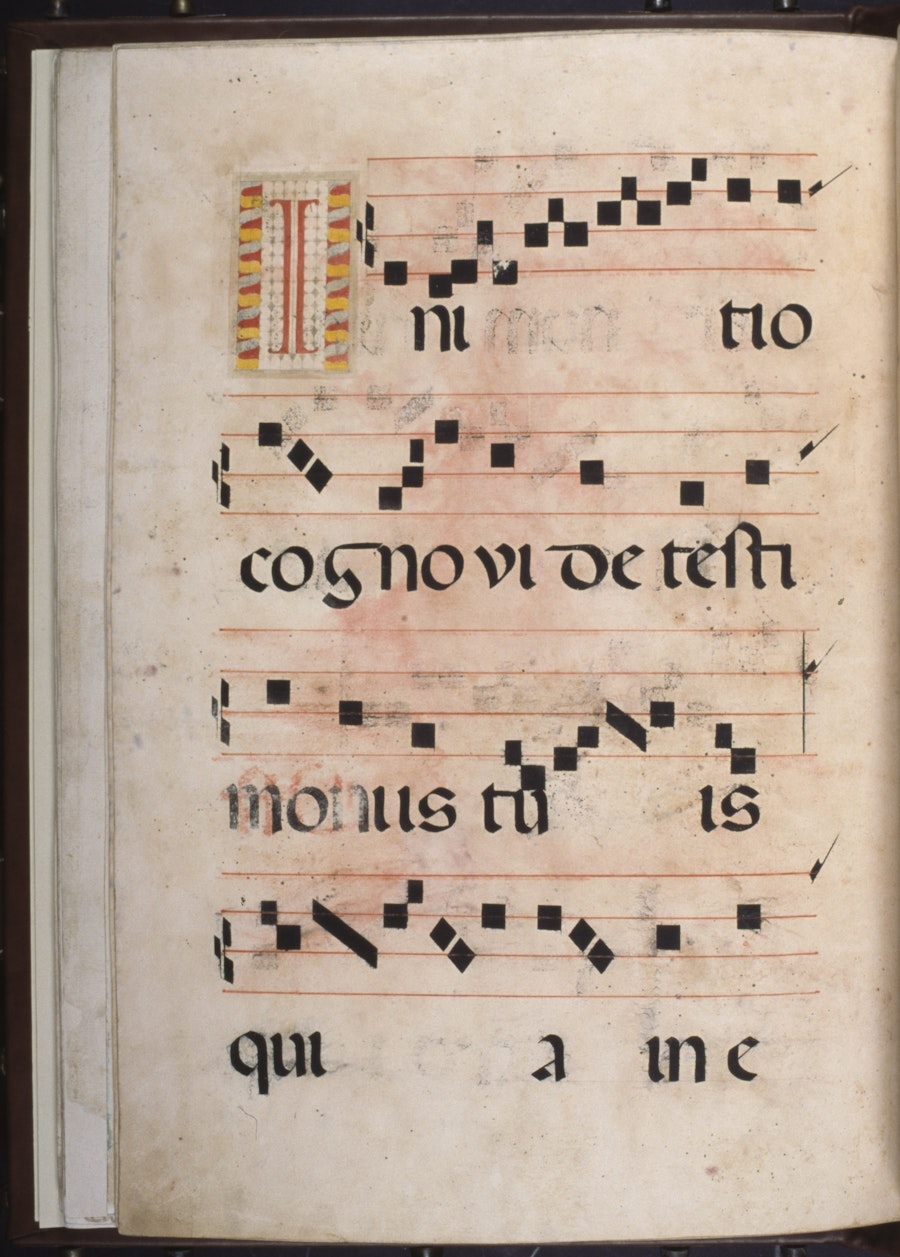 I ni tio
cognovi de testi
moniis tu is
qui a in e